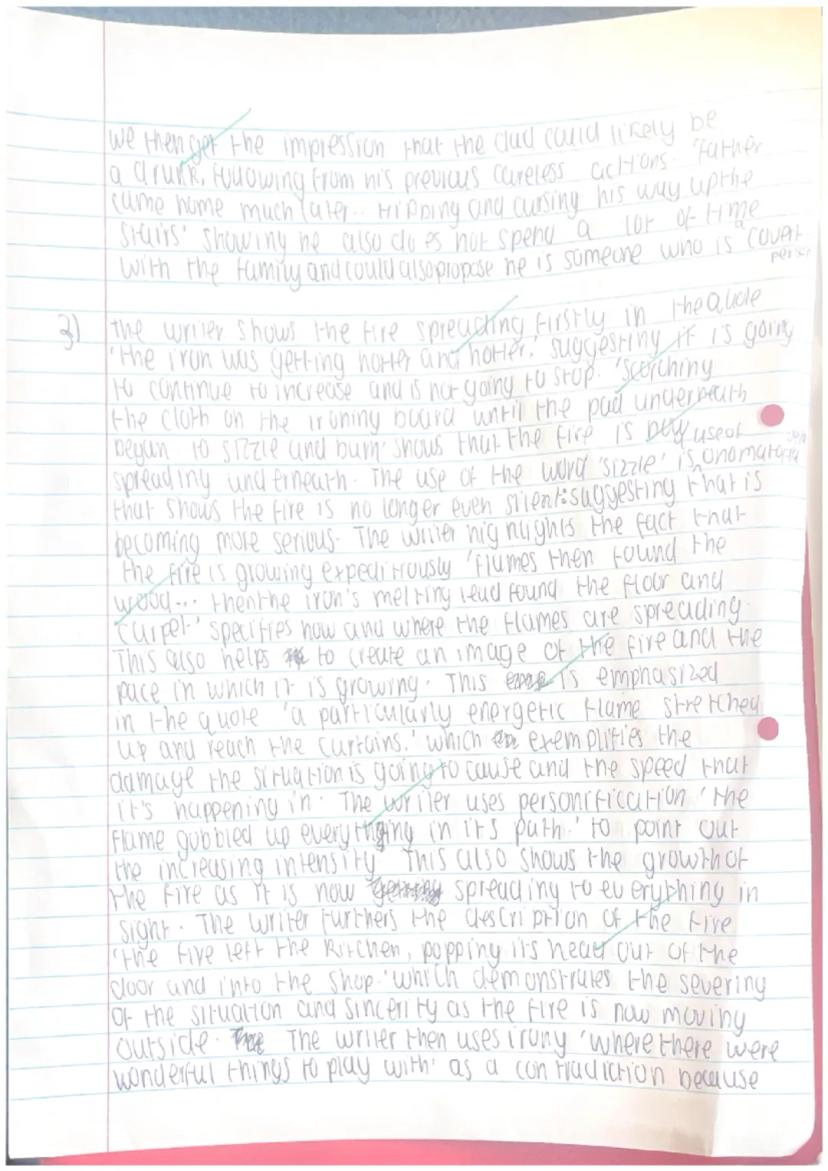 we then get the impression that the dad could likely be
a drunk, following from his previous careless actions. 'Father
came home much later.. tripping and cursing his way up the
stairs' showing he also does not spend a lot of time
with the family and could also propose he is someone who is a covert
3) The writer shows the fire spreading firstly in the quote
'the iron was getting hotter and hotter.' suggesting it is going
to continue to increase and is not going to stop. 'scorching
the cloth on the ironing board until the pad underneath
began to sizzle and burn' shows that the fire is now
spreading underneath. The use of the word 'sizzle' is use of onomatopoeia
that shows the fire is no longer even silent suggesting that is
becoming more serious. The writer highlights the fact that
the fire is growing expeditiously 'flumes then found the
wood... then the iron's melting lead found the floor and
carpet.' specifies how and where the flames are spreading.
This also helps to create an image of the fire and the
pace in which it is growing. This is emphasized
in the quote 'a particularly energetic flame stretched
up and reach the curtains.' which exemplifies the
damage the situation is going to cause and the speed that
it's happening in. The writer uses personification 'the
flame gobbled up everything in its path.' to point out
the increasing intensity. This also shows the growth of
the fire as it is now spreading to everything in
sight. The writer furthers the description of the fire
'the fire left the kitchen, popping its head out of the
door and into the shop.' which demonstrates the severing
of the situation and sincerity as the fire is now moving
outside. The writer then uses irony 'where there were
wonderful things to play with' as a contradiction because